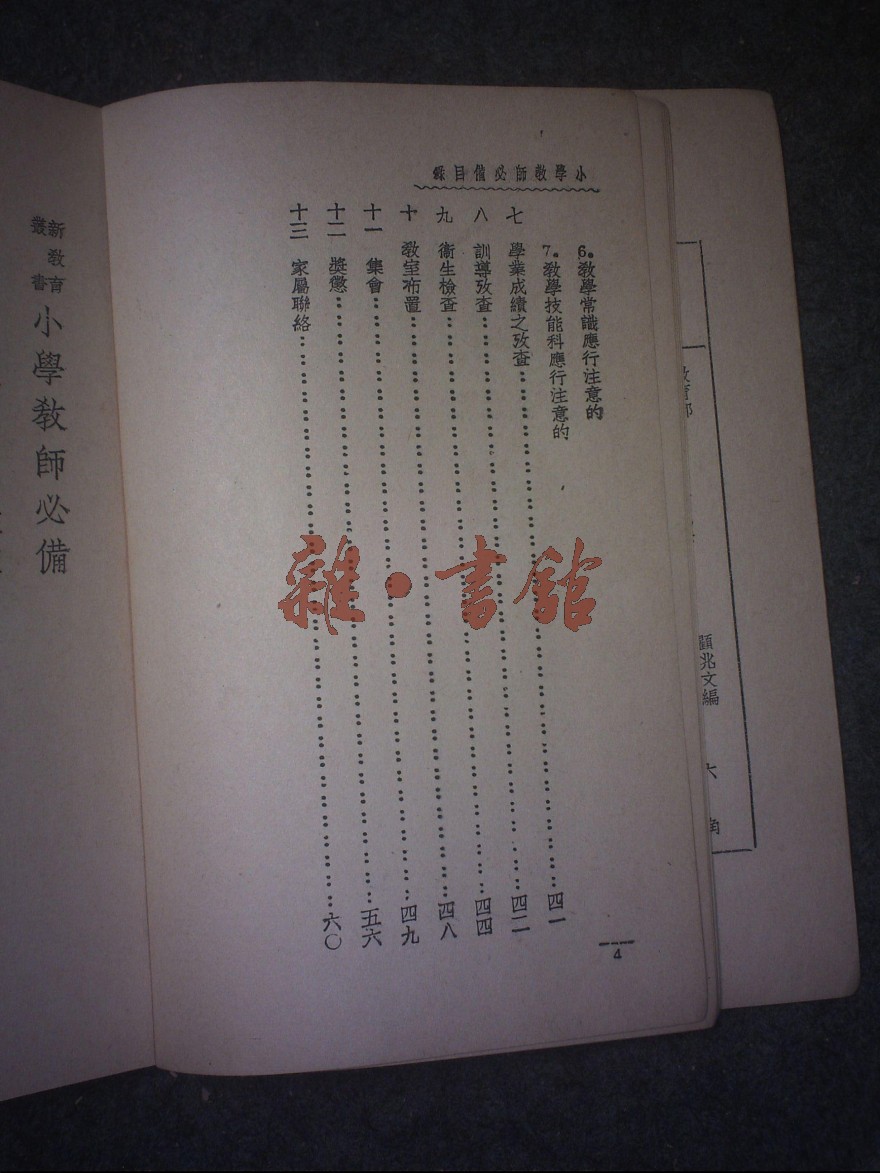 小學教師必備目錄
6。教學常識應行注意的
7。教學技能科應行注意的
七 學業成績之攷查……四一
八 訓導攷查……四二
九 衞生檢查……四四
十 教室布置……四八
十一 集會……四九
十二 獎懲……五六
十三 家屬聯絡……六〇
4
新教育叢書
小學教師必備
教育部
顧兆文編
角
雜·書館